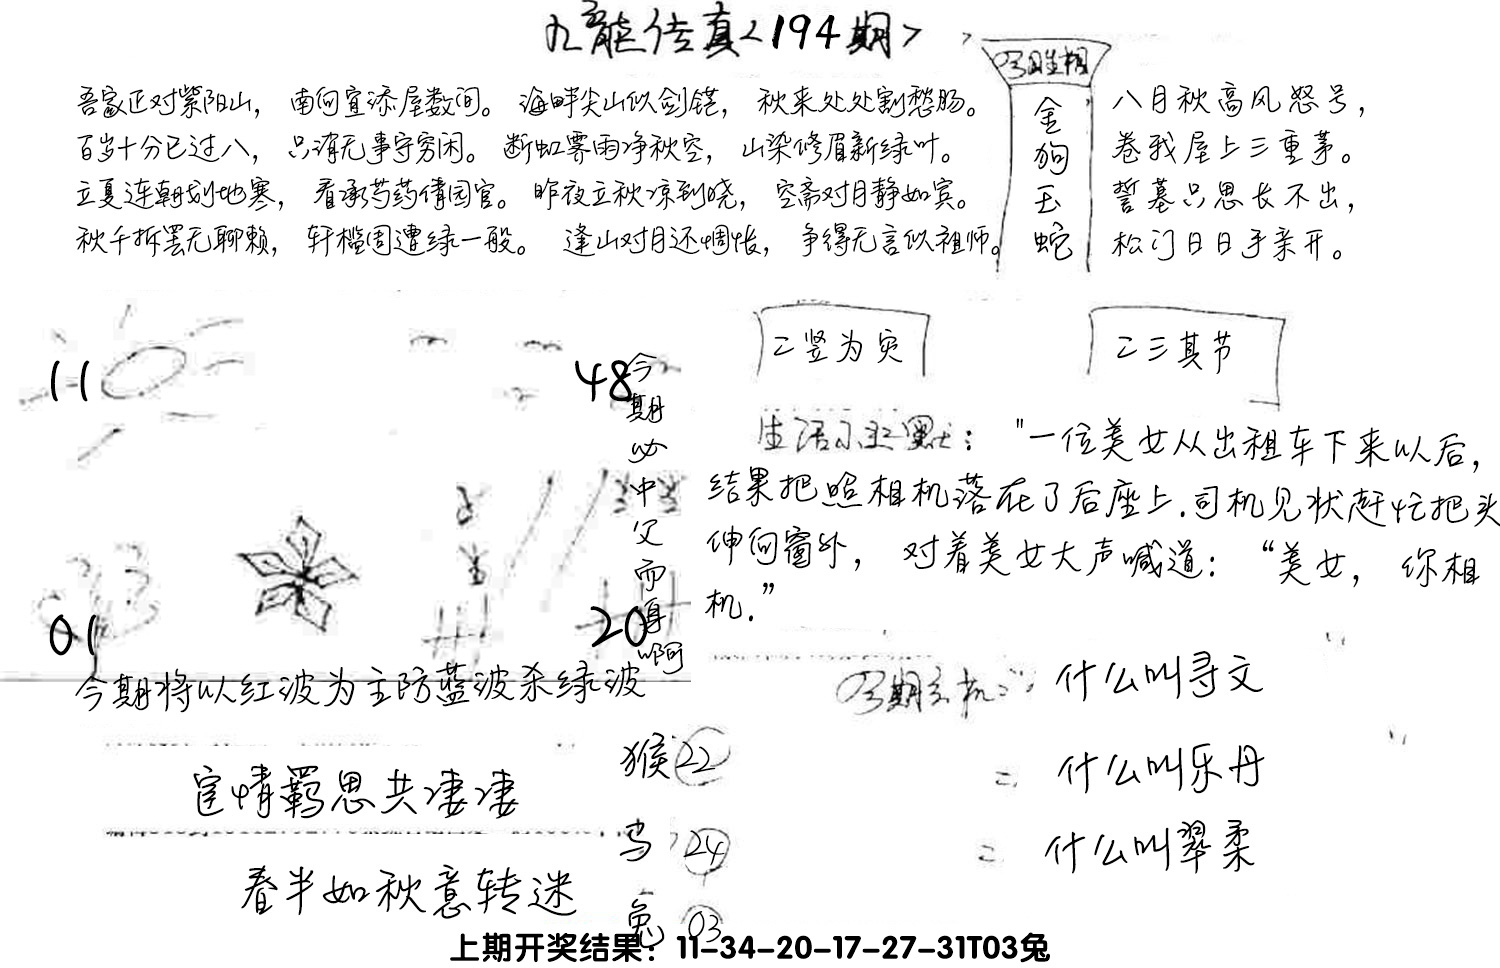 九龙传真<194期>
吾家正对紫阳山，南向宜添屋数间。海畔尖山似剑铓，秋来处处割愁肠。
百岁十分已过八，只消无事守穷闲。断虹霁雨净秋空，山染修眉新绿叶。
立夏连朝刬地寒，看承芍药倩园官。昨夜立秋凉到晓，空斋对月静如宾。
秋千拆罢无聊赖，轩槛周遭绿一般。逢山对月还惆怅，争得无言似祖师。
今期生相
金
狗
玉
蛇
八月秋高风怒号，
卷我屋上三重茅。
誓墓只思长不出，
松门日日手亲开。
11
48
01
20
今
期
必
中
父
而
再
啊
今期将以红波为主防蓝波杀绿波
二竖为灾
二三其节
生活小幽默："一位美女从出租车下来以后，
结果把照相机落在了后座上.司机见状赶忙把头
伸向窗外，对着美女大声喊道：“美女，你相
机.”
今期玄机：什么叫寻文
= 什么叫乐丹
= 什么叫翠柔
宦情羁思共凄凄
春半如秋意转迷
猴22
鸡24
兔03
上期开奖结果：11-34-20-17-27-31T03兔